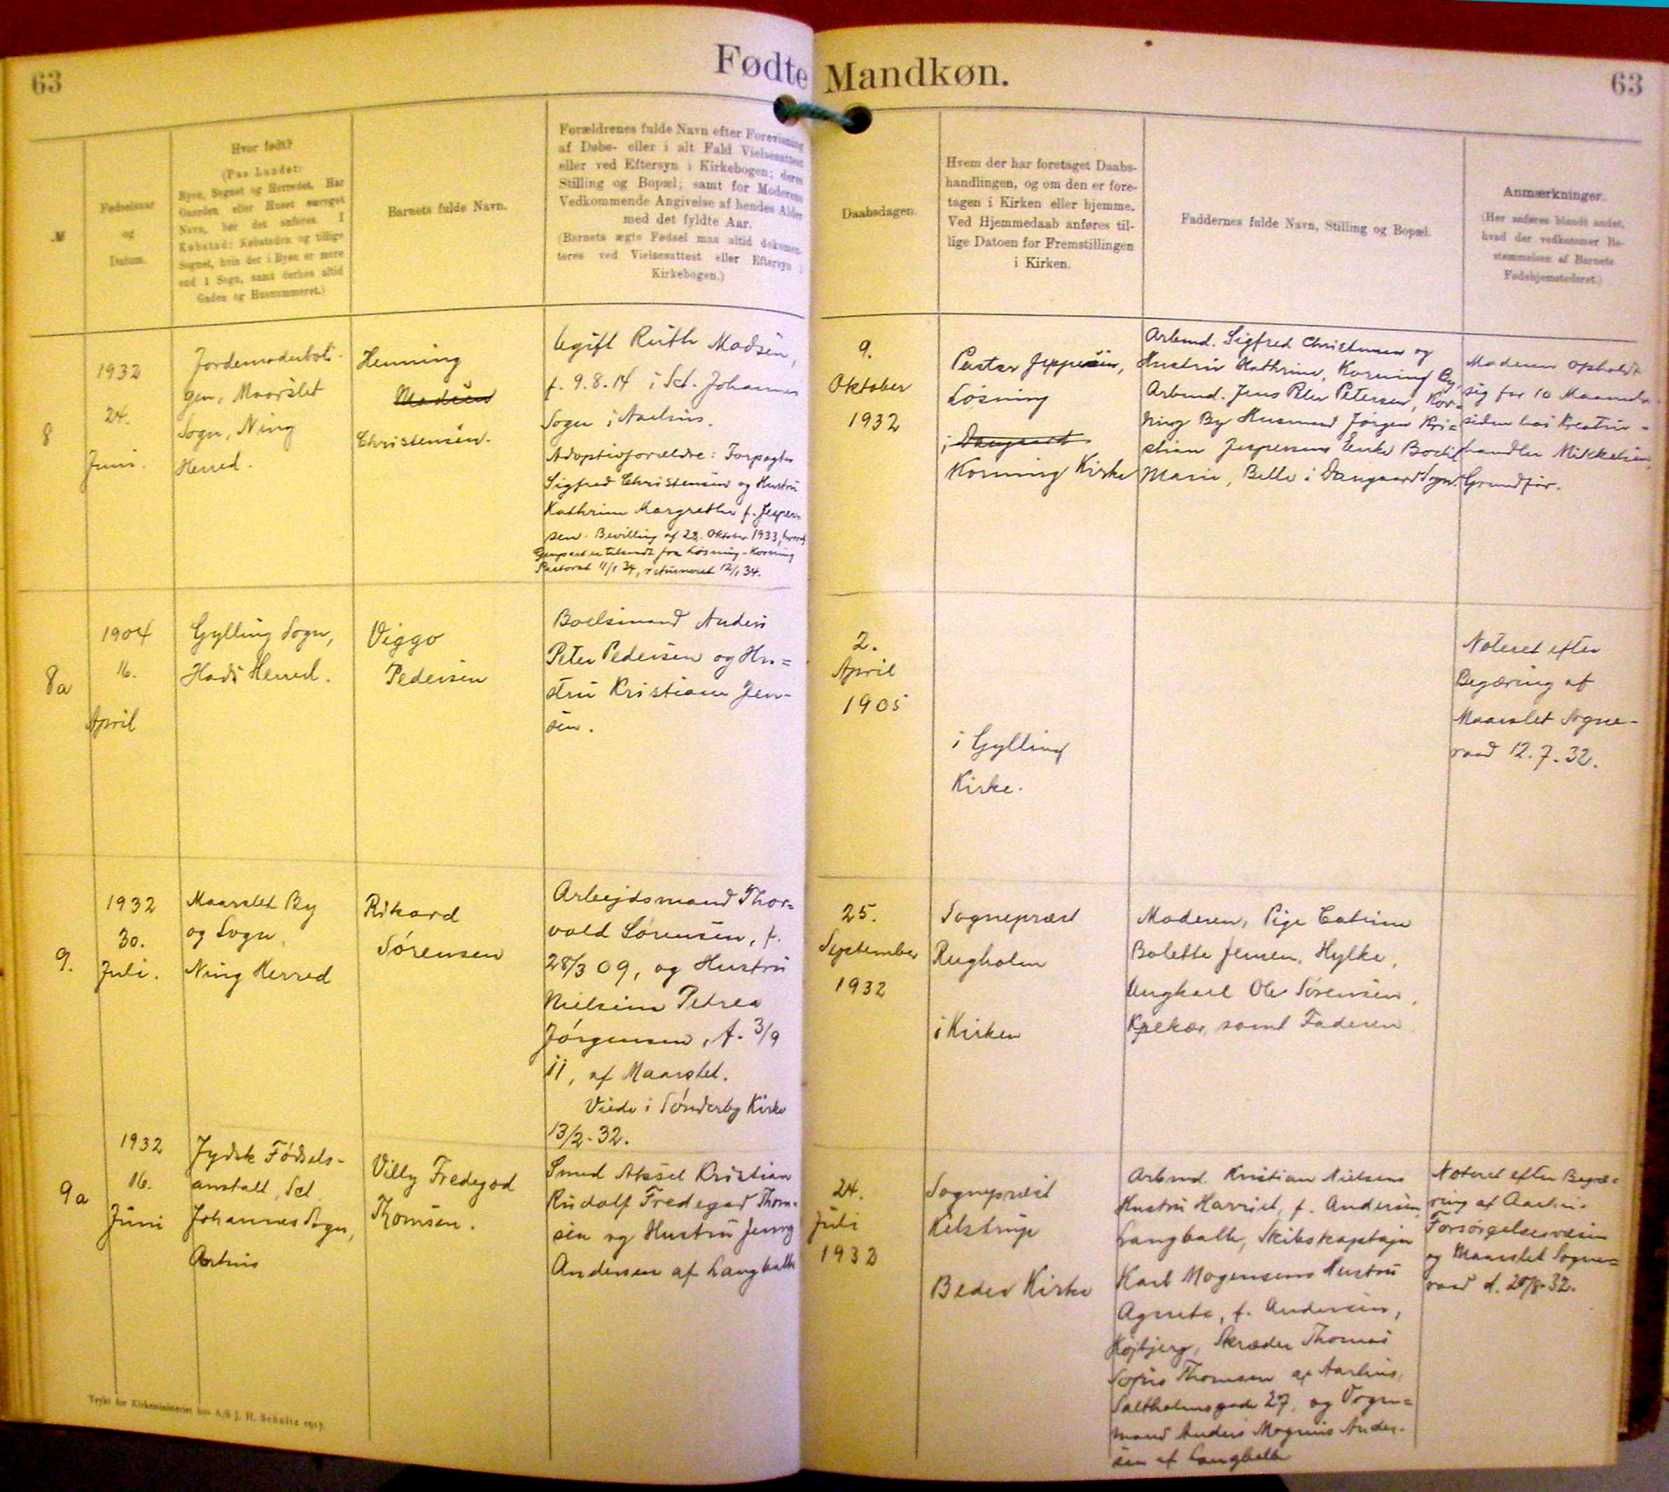 63
Fødte
Mandkøn.
63
№
Fødselsaar
og
Datum.
Hvor født?
(Paa Landet:
Byen, Sognet og Herredet. Har
Gaarden eller Huset særeget
Navn, bør det anføres. I
Købstad: Købstaden og tillige
Sognet, hvis der i Byen er mere
end 1 Sogn, samt derhos altid
Gaden og Husnummeret.)
Barnets fulde Navn.
Forældrenes fulde Navn efter Forevisning
af Døbe- eller i alt Fald Vielsesattest
eller ved Eftersyn i Kirkebogen; deres
Stilling og Bopæl; samt for Moderens
Vedkommende Angivelse af hendes Alder
med det fyldte Aar.
(Barnets ægte Fødsel maa altid dokumen-
teres ved Vielsesattest eller Eftersyn i
Kirkebogen.)
Daabsdagen.
Hvem der har foretaget Daabs-
handlingen, og om den er fore-
tagen i Kirken eller hjemme.
Ved Hjemmedaab anføres til-
lige Datoen for Fremstillingen
i Kirken.
Faddernes fulde Navn, Stilling og Bopæl.
Anmærkninger.
(Her anføres blandt andet,
hvad der vedkommer Be-
stemmelsen af Barnets
Fødehjemstederet.)
8
1932
24.
Juni.
Jordemoderboli-
gen, Maarslet
Sogn, Ning
Herred.
Henning
Madsen
Christensen.
Ugift Ruth Madsen,
f. 9.8.14 i Sct. Johannes
Sogn i Aarhus.
Adoptivforældre: Forpagter
Sigfred Christensen og Hustru
Kathrine Margrethe f. Jesper-
sen. Bevilling af 28. Oktober 1933,
Genpart er tilsendt fra Løsning-Korning
Pastorat 11/1 34, returneret 12/1 34.
9.
Oktober
1932
Pastor Jeppesen,
Løsning
i Daugaard
Korning Kirke
Arbmd. Sigfred Christensen og
Hustru Kathrine, Korning By,
Arbmd. Jens Peter Petersen, Kor-
ning By Husmand Jørgen Kri-
stian Jespersens Enke Bodil
Marie, Belle i Daugaard Sogn.
Moderen opholdt
sig for 10 Maaneder
siden hos Kreatur-
handler Mikkelsen,
Grundfør.
8a
1904
16.
April
Gylling Sogn,
Hads Herred.
Viggo
Pedersen
Boelsmand Anders
Peter Pedersen og Hu=
stru Kristiane Jen-
sen.
2.
April
1905
i Gylling
Kirke.
Noteret efter
Begæring af
Maarslet Sogne-
raad 12.7.32.
9.
1932
30.
Juli.
Maarslet By
og Sogn,
Ning Herred
Rikard
Sørensen
Arbejdsmand Thor=
vald Sørensen, f.
28/3 09, og Hustru
Nielsine Petrea
Jørgensen, f. 3/9
11, af Maarslet.
Viede i Sønderby Kirke
13/2-32.
25.
September
1932
Sognepræst
Rugholm
i Kirken
Moderen, Pige Catrine
Bolette Jensen, Hylke,
Ungkarl Ole Sørensen,
samt Faderen
9a
1932
16.
Juni
Jydsk Fødsels-
anstalt, Sct.
Johannes Sogn,
Aarhus
Villy Fredegod
Thomsen.
Smed Aksel Kristian
Rudolf Fredegod Thom-
sen og Hustru Jenny
Andersen af Langballe
24.
Juli
1932
Sognepræst
Kilstrup
Beder Kirke
Arbmd. Kristian Nielsens
Hustru Harriet, f. Andersen,
Langballe, Skibskaptajn
Karl Mogensens Hustru
Agnete, f. Andersen,
Højbjerg, Skræder Thomas
Sofus Thomsen af Aarhus,
Saltholmsgade 27, og Vogn=
mand Anders Magnus Ander-
sen af Langballe
Noteret efter Begæ=
ring af Aarhus
Forsørgelsesvæsen
og Maarslet Sogne=
raad d. 20/8-32.
Trykt for Kirkeministeriet hos A/S J. H. Schultz 1917.